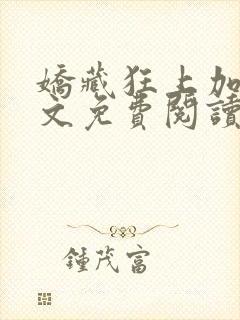 嬌藏狂上加
文免費閱讀
鍾茂富